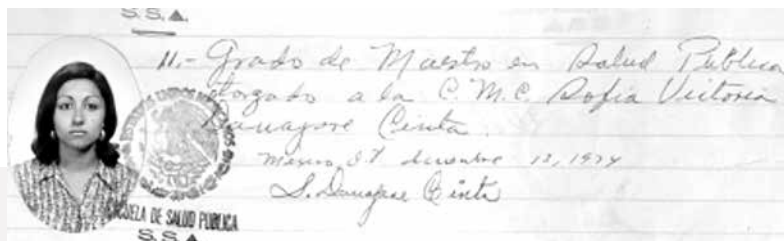 S. S. A.
11.- Grado de Maestro en Salud Publica
otorgado a la C. M. C. Sofia Victoria
Cinta.
Mexico, D.F. diciembre 12, 1974
S. Cinta
ESCUELA DE SALUD PUBLICA
S. S. A.